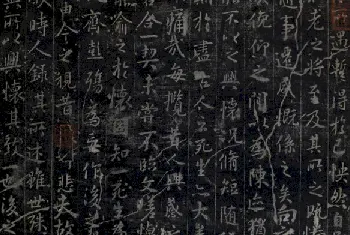 所遇暫得於己怏然自
老之將至及其所之既惓
事遷感慨係之矣向
俛仰之閒以為陳迹猶
能不以之興懷況脩短隨
於盡古人云死生亦大
痛哉每攬昔人興感
合一契未嘗不臨文嗟悼
喻之於懷固知一死生
齊彭殤為妄作後
由今之視昔悲夫故
時人錄其所述雖世殊
異所以興懷其致一也後之